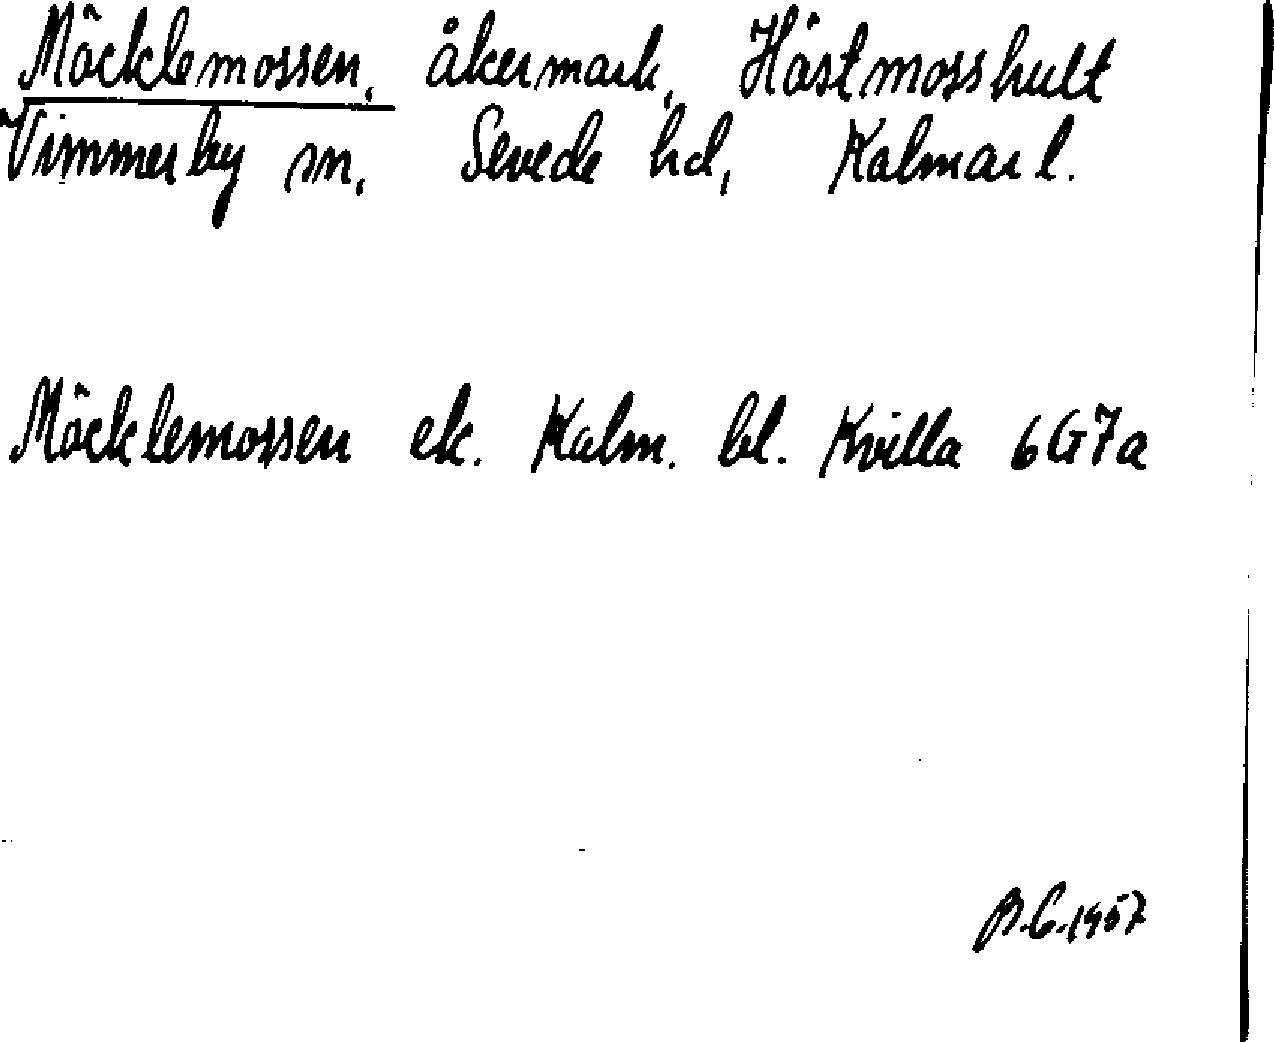 Möcklemossen, åkermark, Hästmosshult
Vimmerby sn, Sevede hd, Kalmar l.
Möcklemossen ek. Kalm. bl. Kvilla 6G7a
B.C. 1957